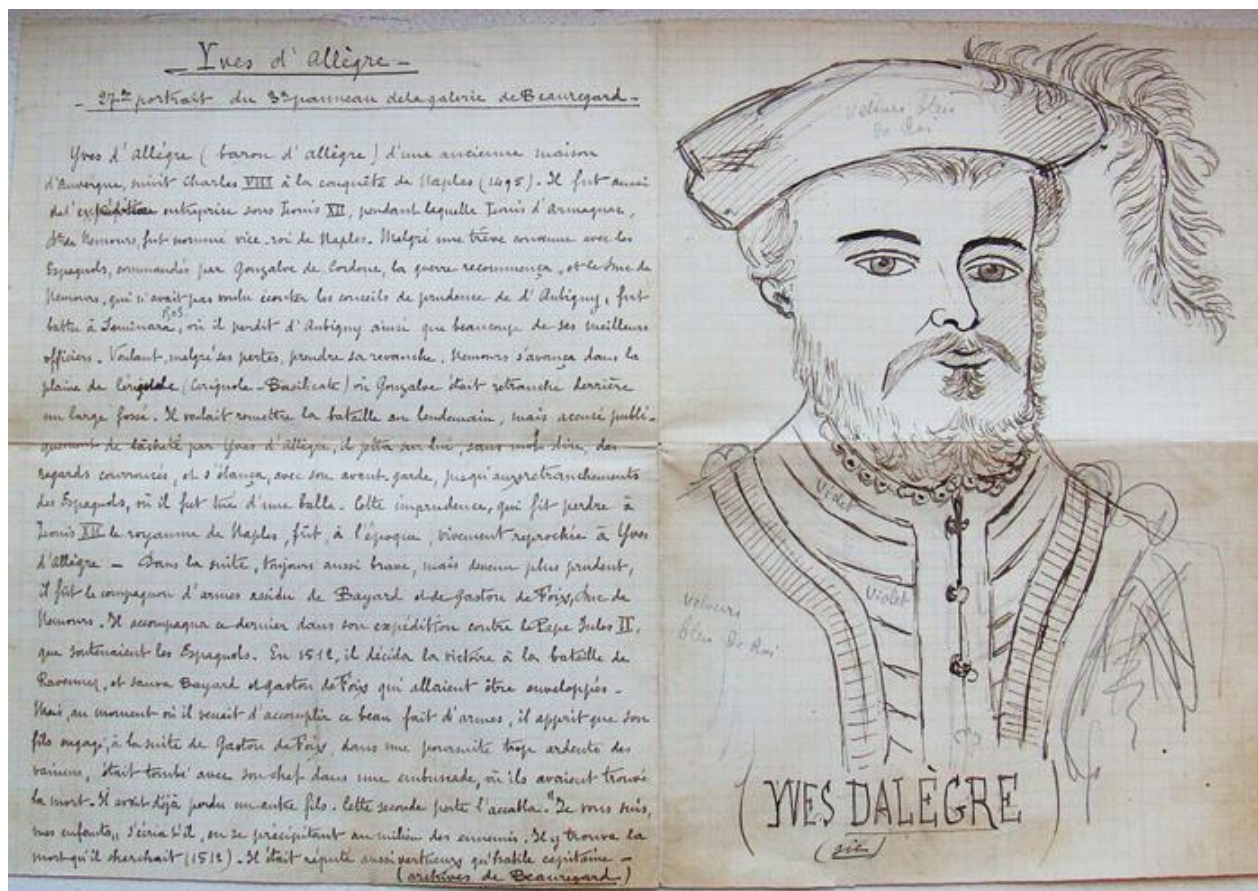 Yves d'Allègre
27me portrait du 3e panneau de la galerie de Beauregard
Yves d'Allègre (baron d'Allègre) d'une ancienne maison
d'Auvergne, suivit Charles VIII à la conquête de Naples (1495). Il fut aussi
de l'expédition entreprise sous Louis XII, pendant laquelle Louis d'Armagnac,
de Nemours, fut nommé vice-roi de Naples. Malgré une trève convenue avec les
Espagnols, commandés par Gonzalve de Cordoue, la guerre recommença, et le duc de
Nemours, qui n'avait pas voulu écouter les conseils de prudence de d'Aubigny, fut
battu à Seminara, où il perdit d'Aubigny ainsi que beaucoup de ses meilleurs
officiers. Voulant, malgré ses pertes, prendre sa revanche, Nemours s'avança dans la
plaine de (Cerignole - Basilicate) où Gonzalve était retranché derrière
un large fossé. Il voulait remettre la bataille au lendemain, mais accusé publi-
quement de lâcheté par Yves d'Allègre, il jêta sur lui, sans mot dire, des
regards courroucés, et s'élança, avec son avant-garde, jusqu'aux retranchements
des Espagnols, où il fut tué d'une balle. Cette imprudence, qui fit perdre à
Louis XII le royaume de Naples, fût, à l'époque, vivement reprochée à Yves
d'Allègre - Dans la suite, toujours aussi brave, mais devenu plus prudent,
il fût le compagnon d'armes assidu de Bayard et de Gaston de Foix, duc de
Nemours. Il accompagna ce dernier dans son expédition contre le Pape Jules II,
que soutenaient les Espagnols. En 1512, il décida la victoire à la bataille de
Ravennes, et sauva Bayard et Gaston de Foix qui allaient être enveloppés -
Mais, au moment où il venait d'accomplir ce beau fait d'armes, il apprit que son
fils engagé, à la suite de Gaston de Foix, dans une poursuite trop ardente des
vaincus, était tombé avec son chef dans une embuscade, où ils avaient trouvé
la mort. Il avait déjà perdu un autre fils. Cette seconde perte l'accabla. "Je vous suis,
mes enfants,, s'écria t'il, en se précipitant au milieu des ennemis. Il y trouva la
mort qu'il cherchait (1512). Il était réputé aussi vertueux qu'habile capitaine -
(archives de Beauregard)
Velours bleu
de Roi
Violet
Violet
Velours
bleu de Roi
(YVES DALÈGRE)
(sic)